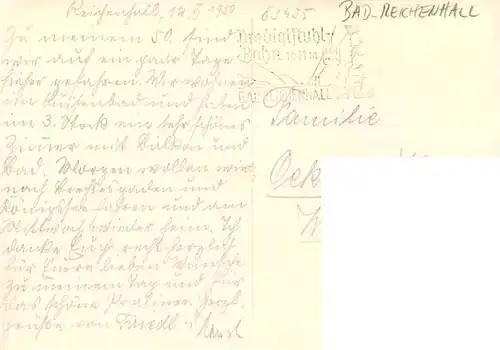 Reichenhall, 12. V 1950
Zu meinem 50. sind
wir auf ein paar Tage
hieher gefahren. Wir wohnen
im Kurfenbad und haben
im 3. Stock ein sehr schönes
Zimmer mit Balkon und
Bad. Morgen wollen wir
nach Berchtesgaden und
Königssee fahren und am
Mittwoch wieder heim. Ich
danke Euch recht herzlich
für Euere lieben Wünsche
zu meinem Tag und für
das schöne Praliner. Herzl.
Grüße von Friedl u.
E3435
BAD-REICHENHALL
Predigtstuhl-
Bahn 1611 m
BAD REICHENHALL
Familie
Oek
W